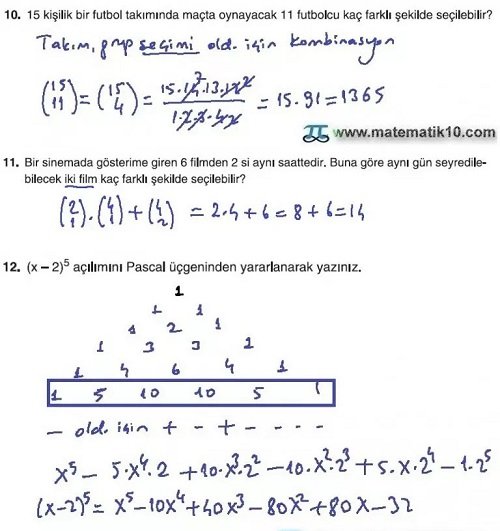 10. 15 kişilik bir futbol takımında maçta oynayacak 11 futbolcu kaç farklı şekilde seçilebilir?
Takım, grup seçimi old. için kombinasyon
(15 11) = (15 4) = 15.14.13.12 / 1.2.3.4 = 15.91 = 1365
www.matematik10.com
11. Bir sinemada gösterime giren 6 filmden 2 si aynı saattedir. Buna göre aynı gün seyredile-
bilecek iki film kaç farklı şekilde seçilebilir?
(2 1).(4 1)+(4 2) = 2.4+6=8+6=14
12. (x – 2)⁵ açılımını Pascal üçgeninden yararlanarak yazınız.
1
1 1
1 2 1
1 3 3 1
1 4 6 4 1
1 5 10 10 5 1
– old. için + - + - - - -
x⁵ – 5.x⁴.2 +10.x³.2² –10.x².2³ +5.x.2⁴ –1.2⁵
(x-2)⁵= x⁵–10x⁴+40x³–80x²+80x–32